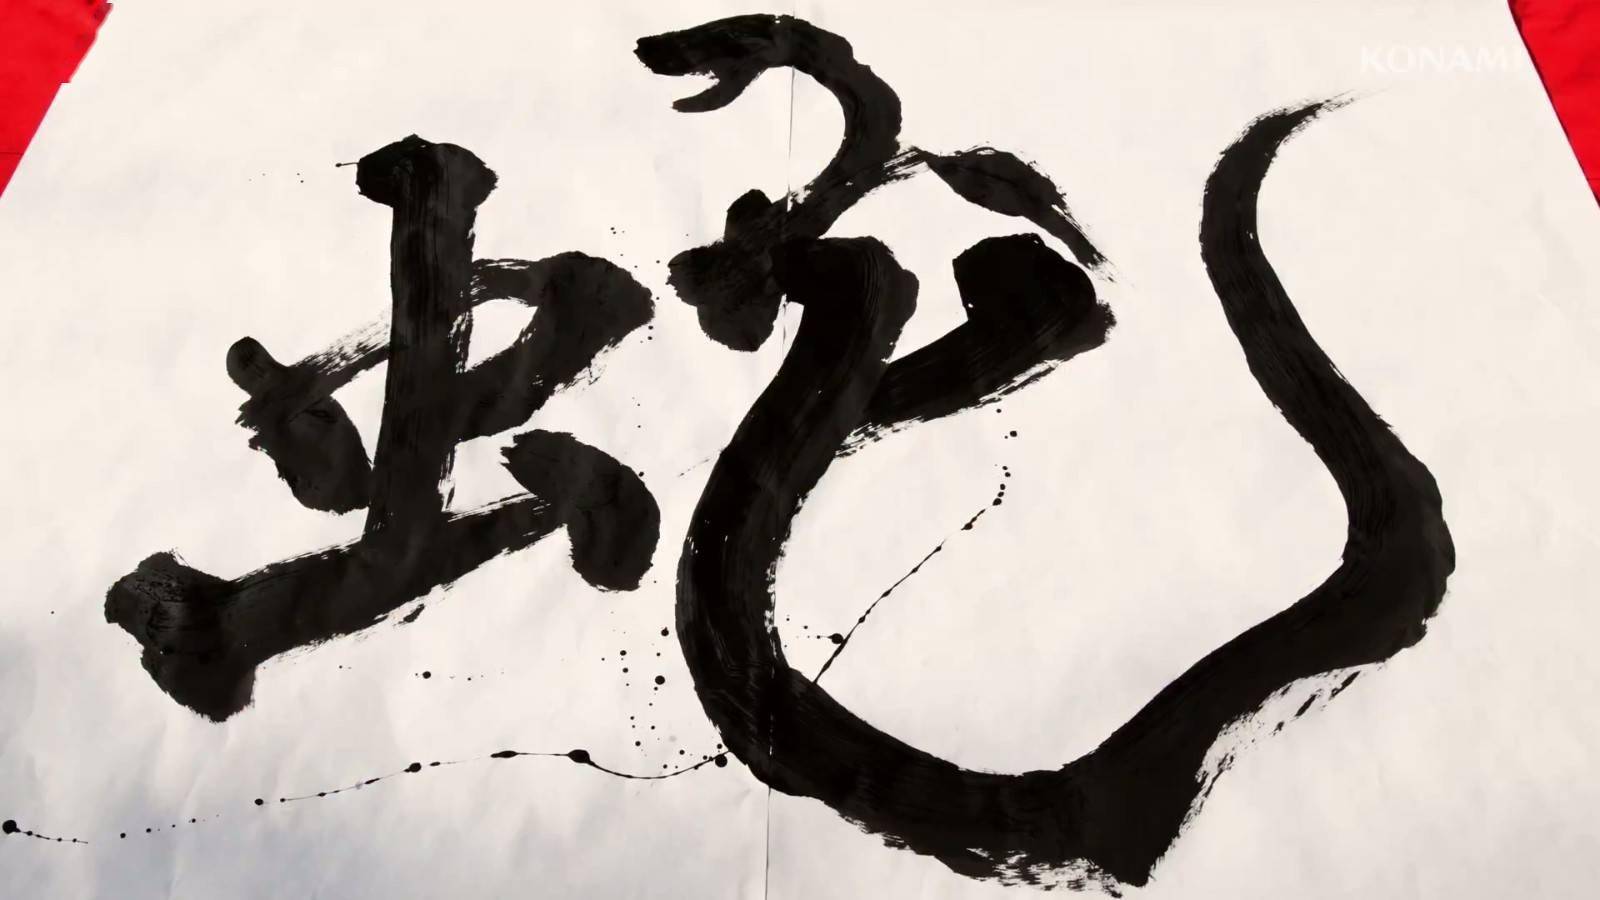 KONAMI
蛇